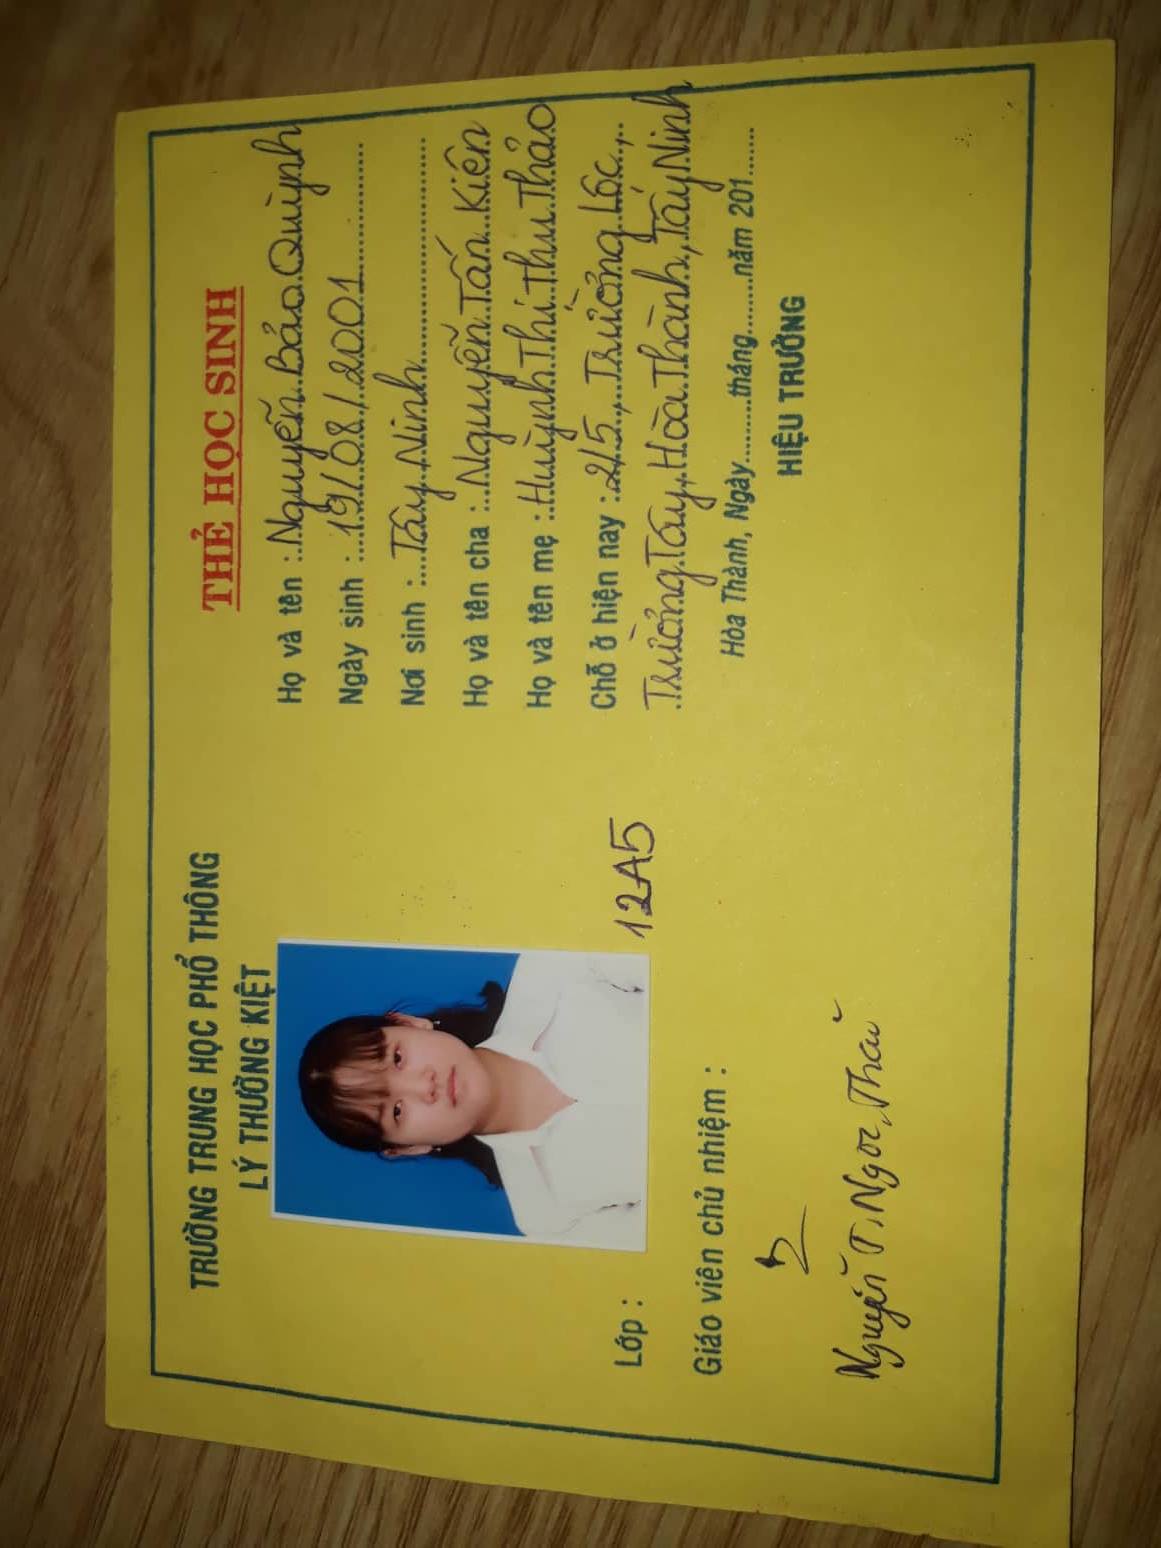 TRƯỜNG TRUNG HỌC PHỔ THÔNG
LÝ THƯỜNG KIỆT
Lớp : 12A5
Giáo viên chủ nhiệm :
Nguyễn T. Ngọc Thai
THẺ HỌC SINH
Họ và tên : Nguyễn Bảo Quỳnh
Ngày sinh : 19/08/2001
Nơi sinh : Tây Ninh
Họ và tên cha : Nguyễn Tấn Kiên
Họ và tên mẹ : Huỳnh Thị Thu Thảo
Chỗ ở hiện nay : 2/5, Trường Lộc,
Trường Tây, Hòa Thành, Tây Ninh
Hòa Thành, Ngày.........tháng.........năm 201......
HIỆU TRƯỞNG